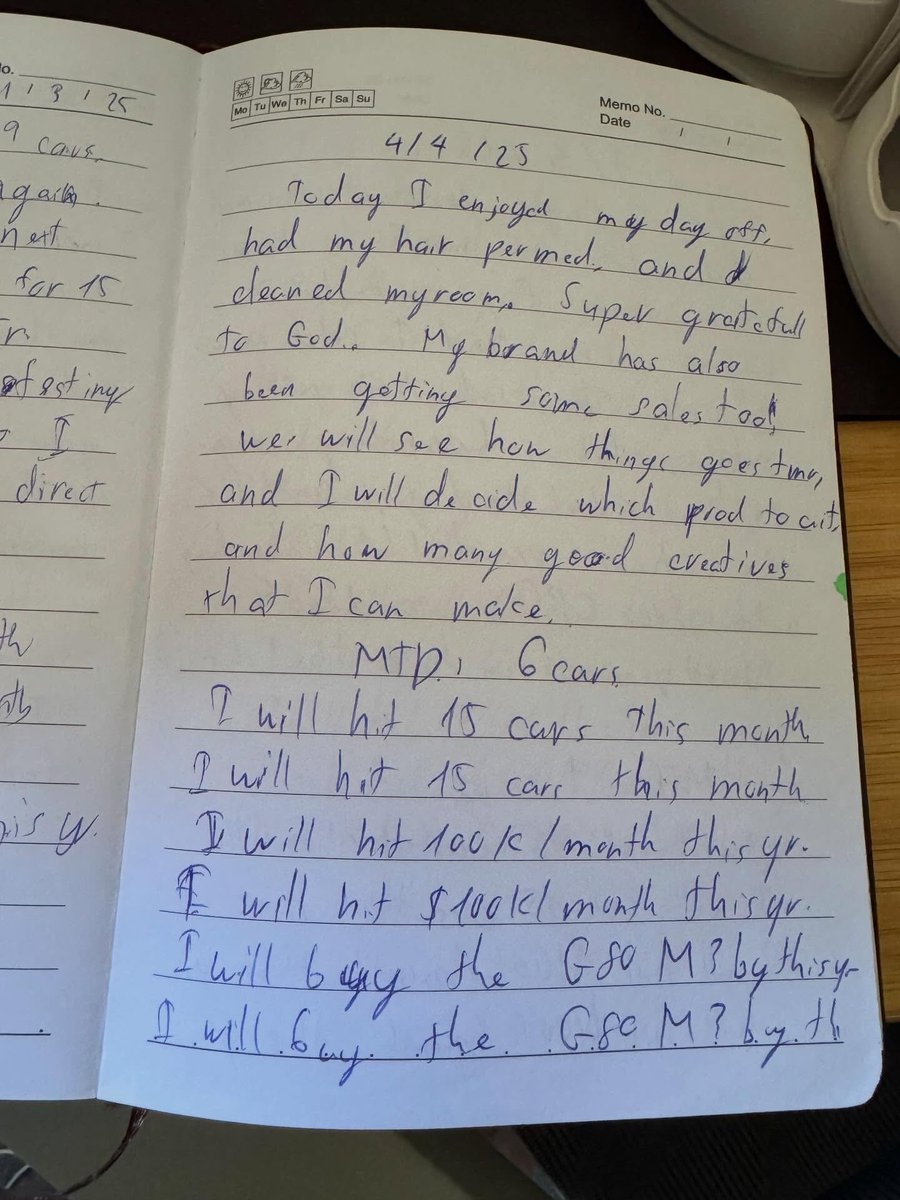 No.
1 / 3 / 25
9 cars.
again.
next
for 15
r.
of estiny
I
direct
th
nth
his yr.
Mo Tu We Th Fr Sa Su
Memo No.
Date / /
4/4 / 25
Today I enjoyed my day off,
had my hair permed, and
cleaned my room. Super gratefull
to God.. My brand has also
been getting some sales too,
we will see how things goes tmr,
and I will decide which prod to cut,
and how many good creatives
that I can make.
MTD: 6 cars
I will hit 15 cars this month
I will hit 15 cars this month
I will hit 100k/month this yr.
I will hit $100k/month this yr.
I will buy the G80 M3 by this yr
I will buy the G80 M3 by th